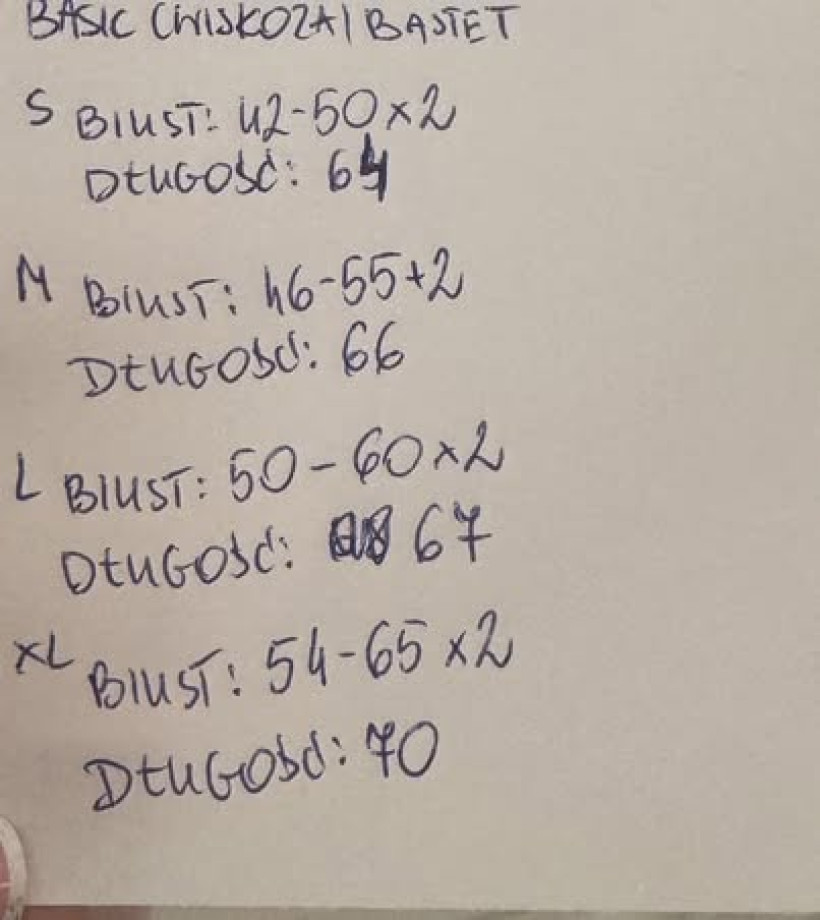 BASIC (WISKOZA) BASTET
S BIUST: 42-50x2
DŁUGOŚĆ: 64
M BIUST: 46-55+2
DŁUGOŚĆ: 66
L BIUST: 50-60x2
DŁUGOŚĆ: 67
XL BIUST: 54-65x2
DŁUGOŚĆ: 70